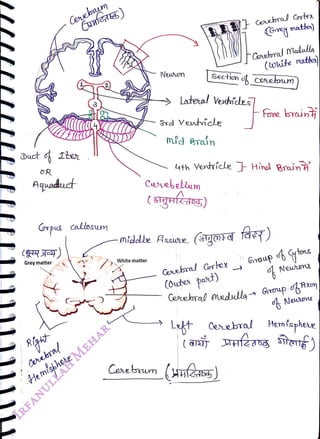 Cerebrum
(प्रमस्तिष्क)
Cerebral Cortex
(Grey matter)
Cerebral Medulla
(White matter)
Section of cerebrum
Neuron
Lateral Ventricles
Fore brain में
3rd Ventricle
Mid Brain
Duct of Iter
OR
Aquaduct
4th Ventricle
Hind Brain में
Cerebellum
(अनुमस्तिष्क)
1
2
3
4
Corpus callosum
middle fissure
Grey matter
White matter
Cerebral Cortex → Group of Cytons
(Outer part)
of Neurons
Cerebral medulla → Group of Axon
of Neurons
Left Cerebral Hemisphere
(बायां प्रमस्तिष्क गोलार्द्ध)
Right
Cerebral
Hemisphere
Cerebrum (प्रमस्तिष्क)
IRFANULLAH MEHAR